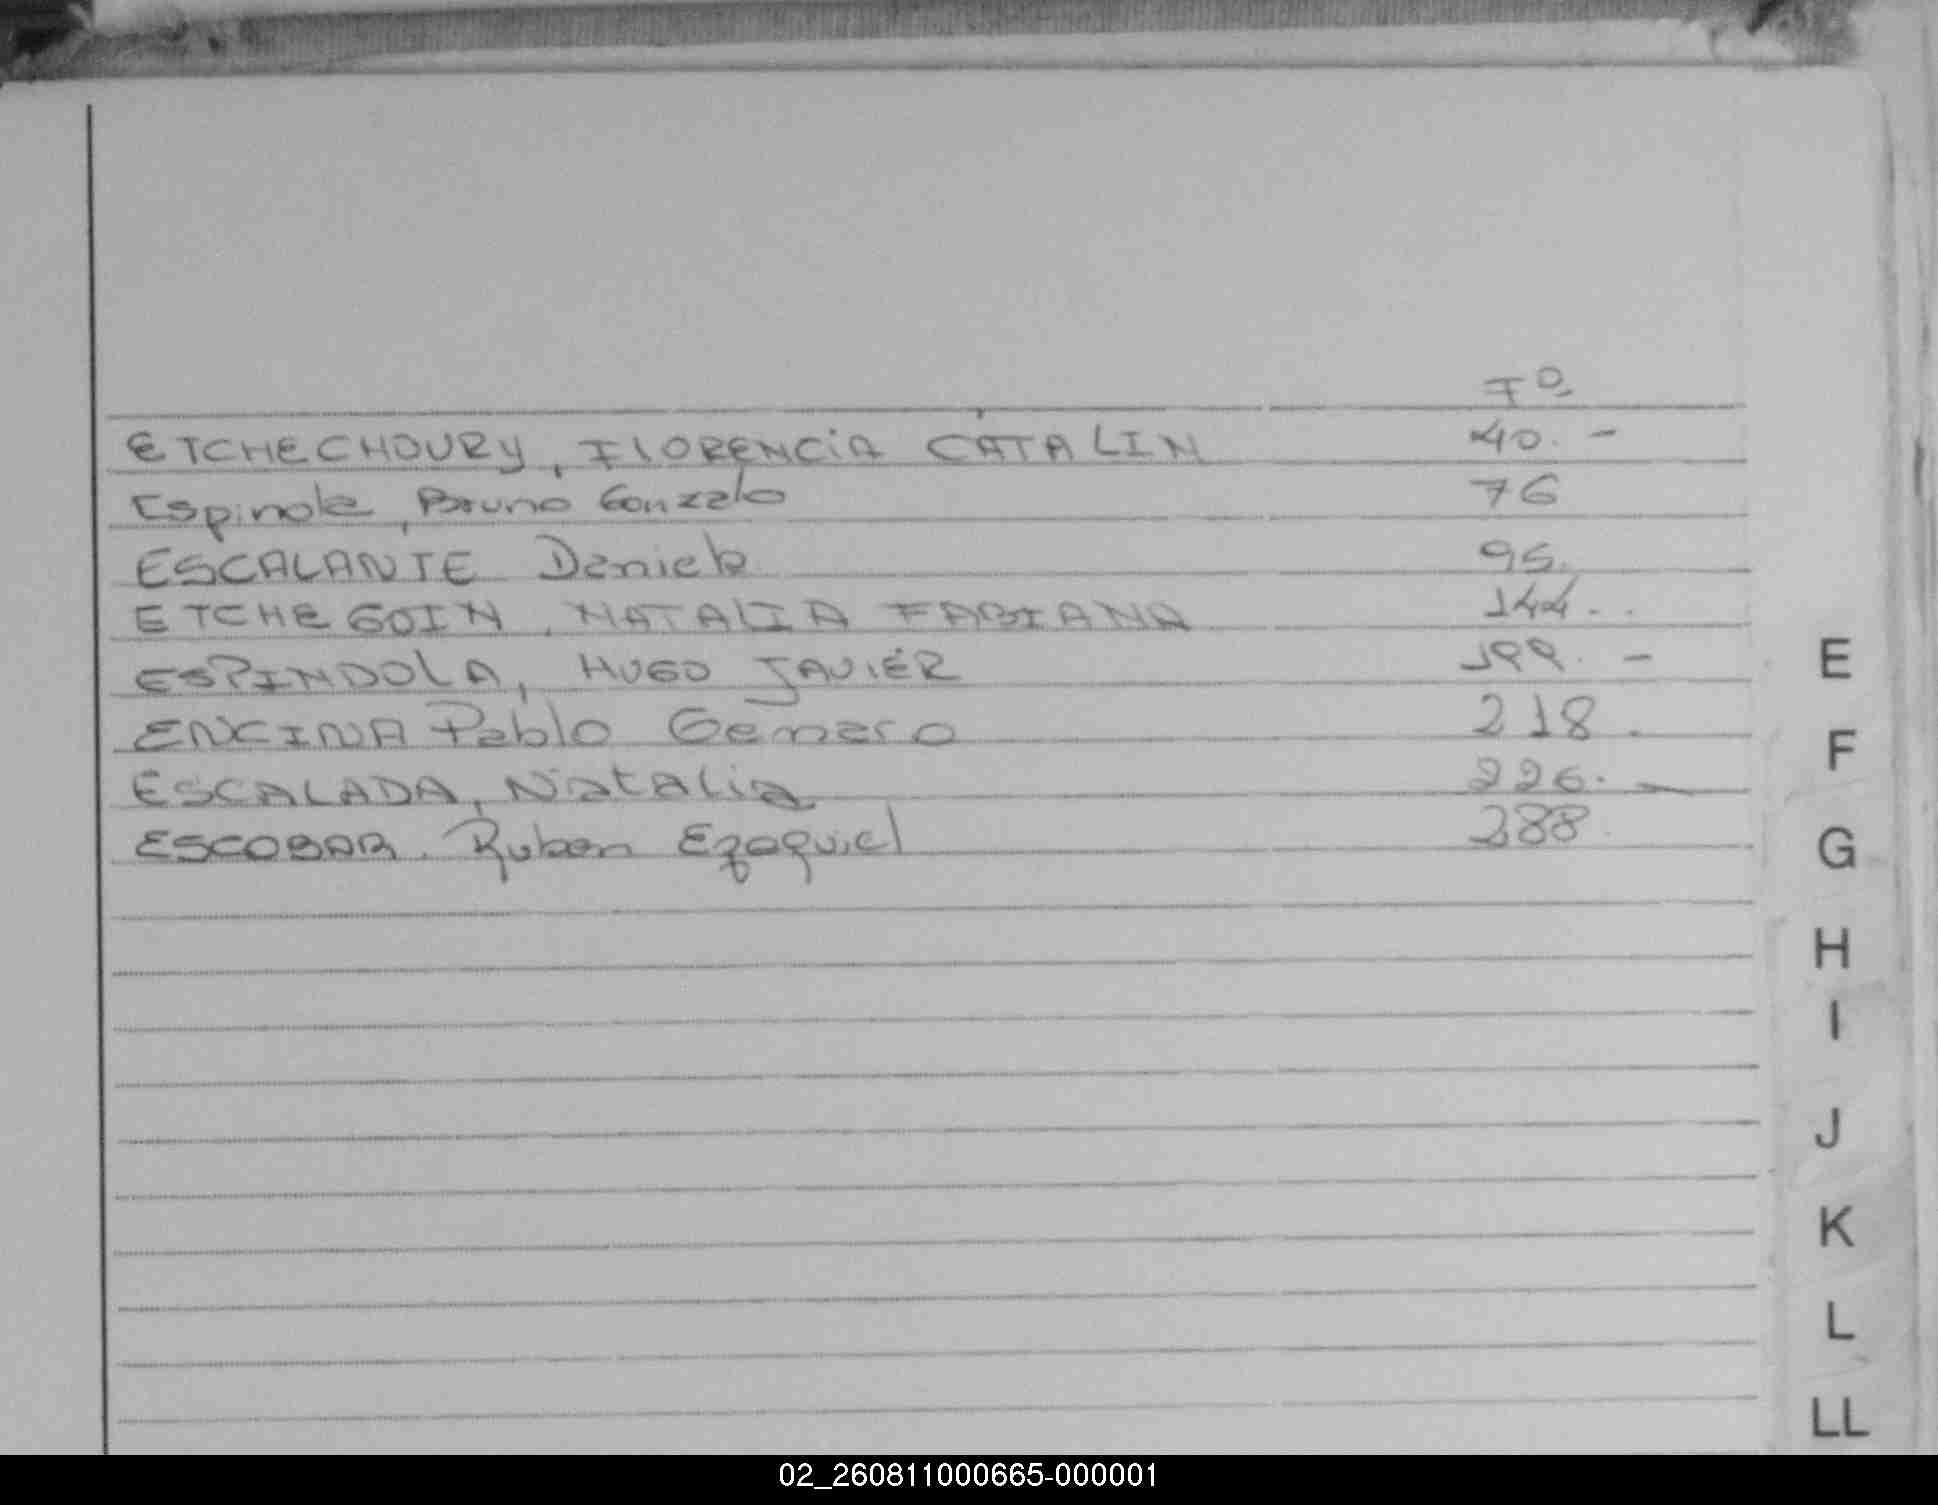 Fº
ETCHECHOURY, FLORENCIA CATALIN 40. -
Espinola, Bruno Gonzalo 76
ESCALANTE Daniela 95.
ETCHEGOIN, NATALIA FABIANA 144..
ESPINDOLA, HUGO JAVIER 199. -
ENCINA Pablo Genaro 218.
ESCALADA, Natalia 226. -
ESCOBAR. Ruben Ezequiel 288.
E
F
G
H
I
J
K
L
LL
02_260811000665-000001